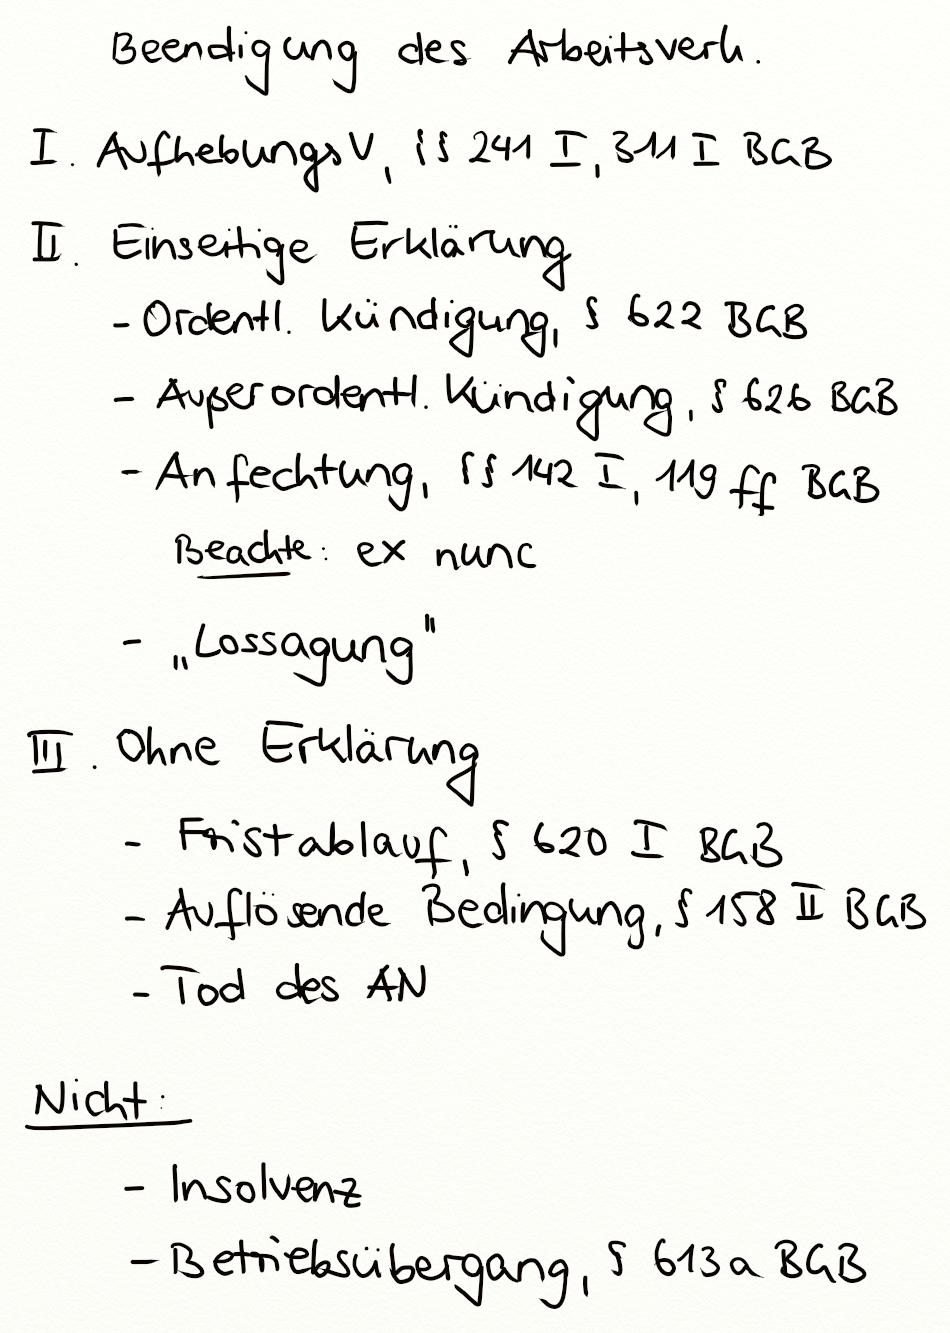 Beendigung des Arbeitsverh.
I. AufhebungsV, §§ 241 I, 311 I BGB
II. Einseitige Erklärung
- Ordentl. Kündigung, § 622 BGB
- Außerordentl. Kündigung, § 626 BGB
- Anfechtung, §§ 142 I, 119 ff BGB
Beachte: ex nunc
- „Lossagung"
III. Ohne Erklärung
- Fristablauf, § 620 I BGB
- Auflösende Bedingung, § 158 II BGB
- Tod des AN
Nicht:
- Insolvenz
- Betriebsübergang, § 613a BGB